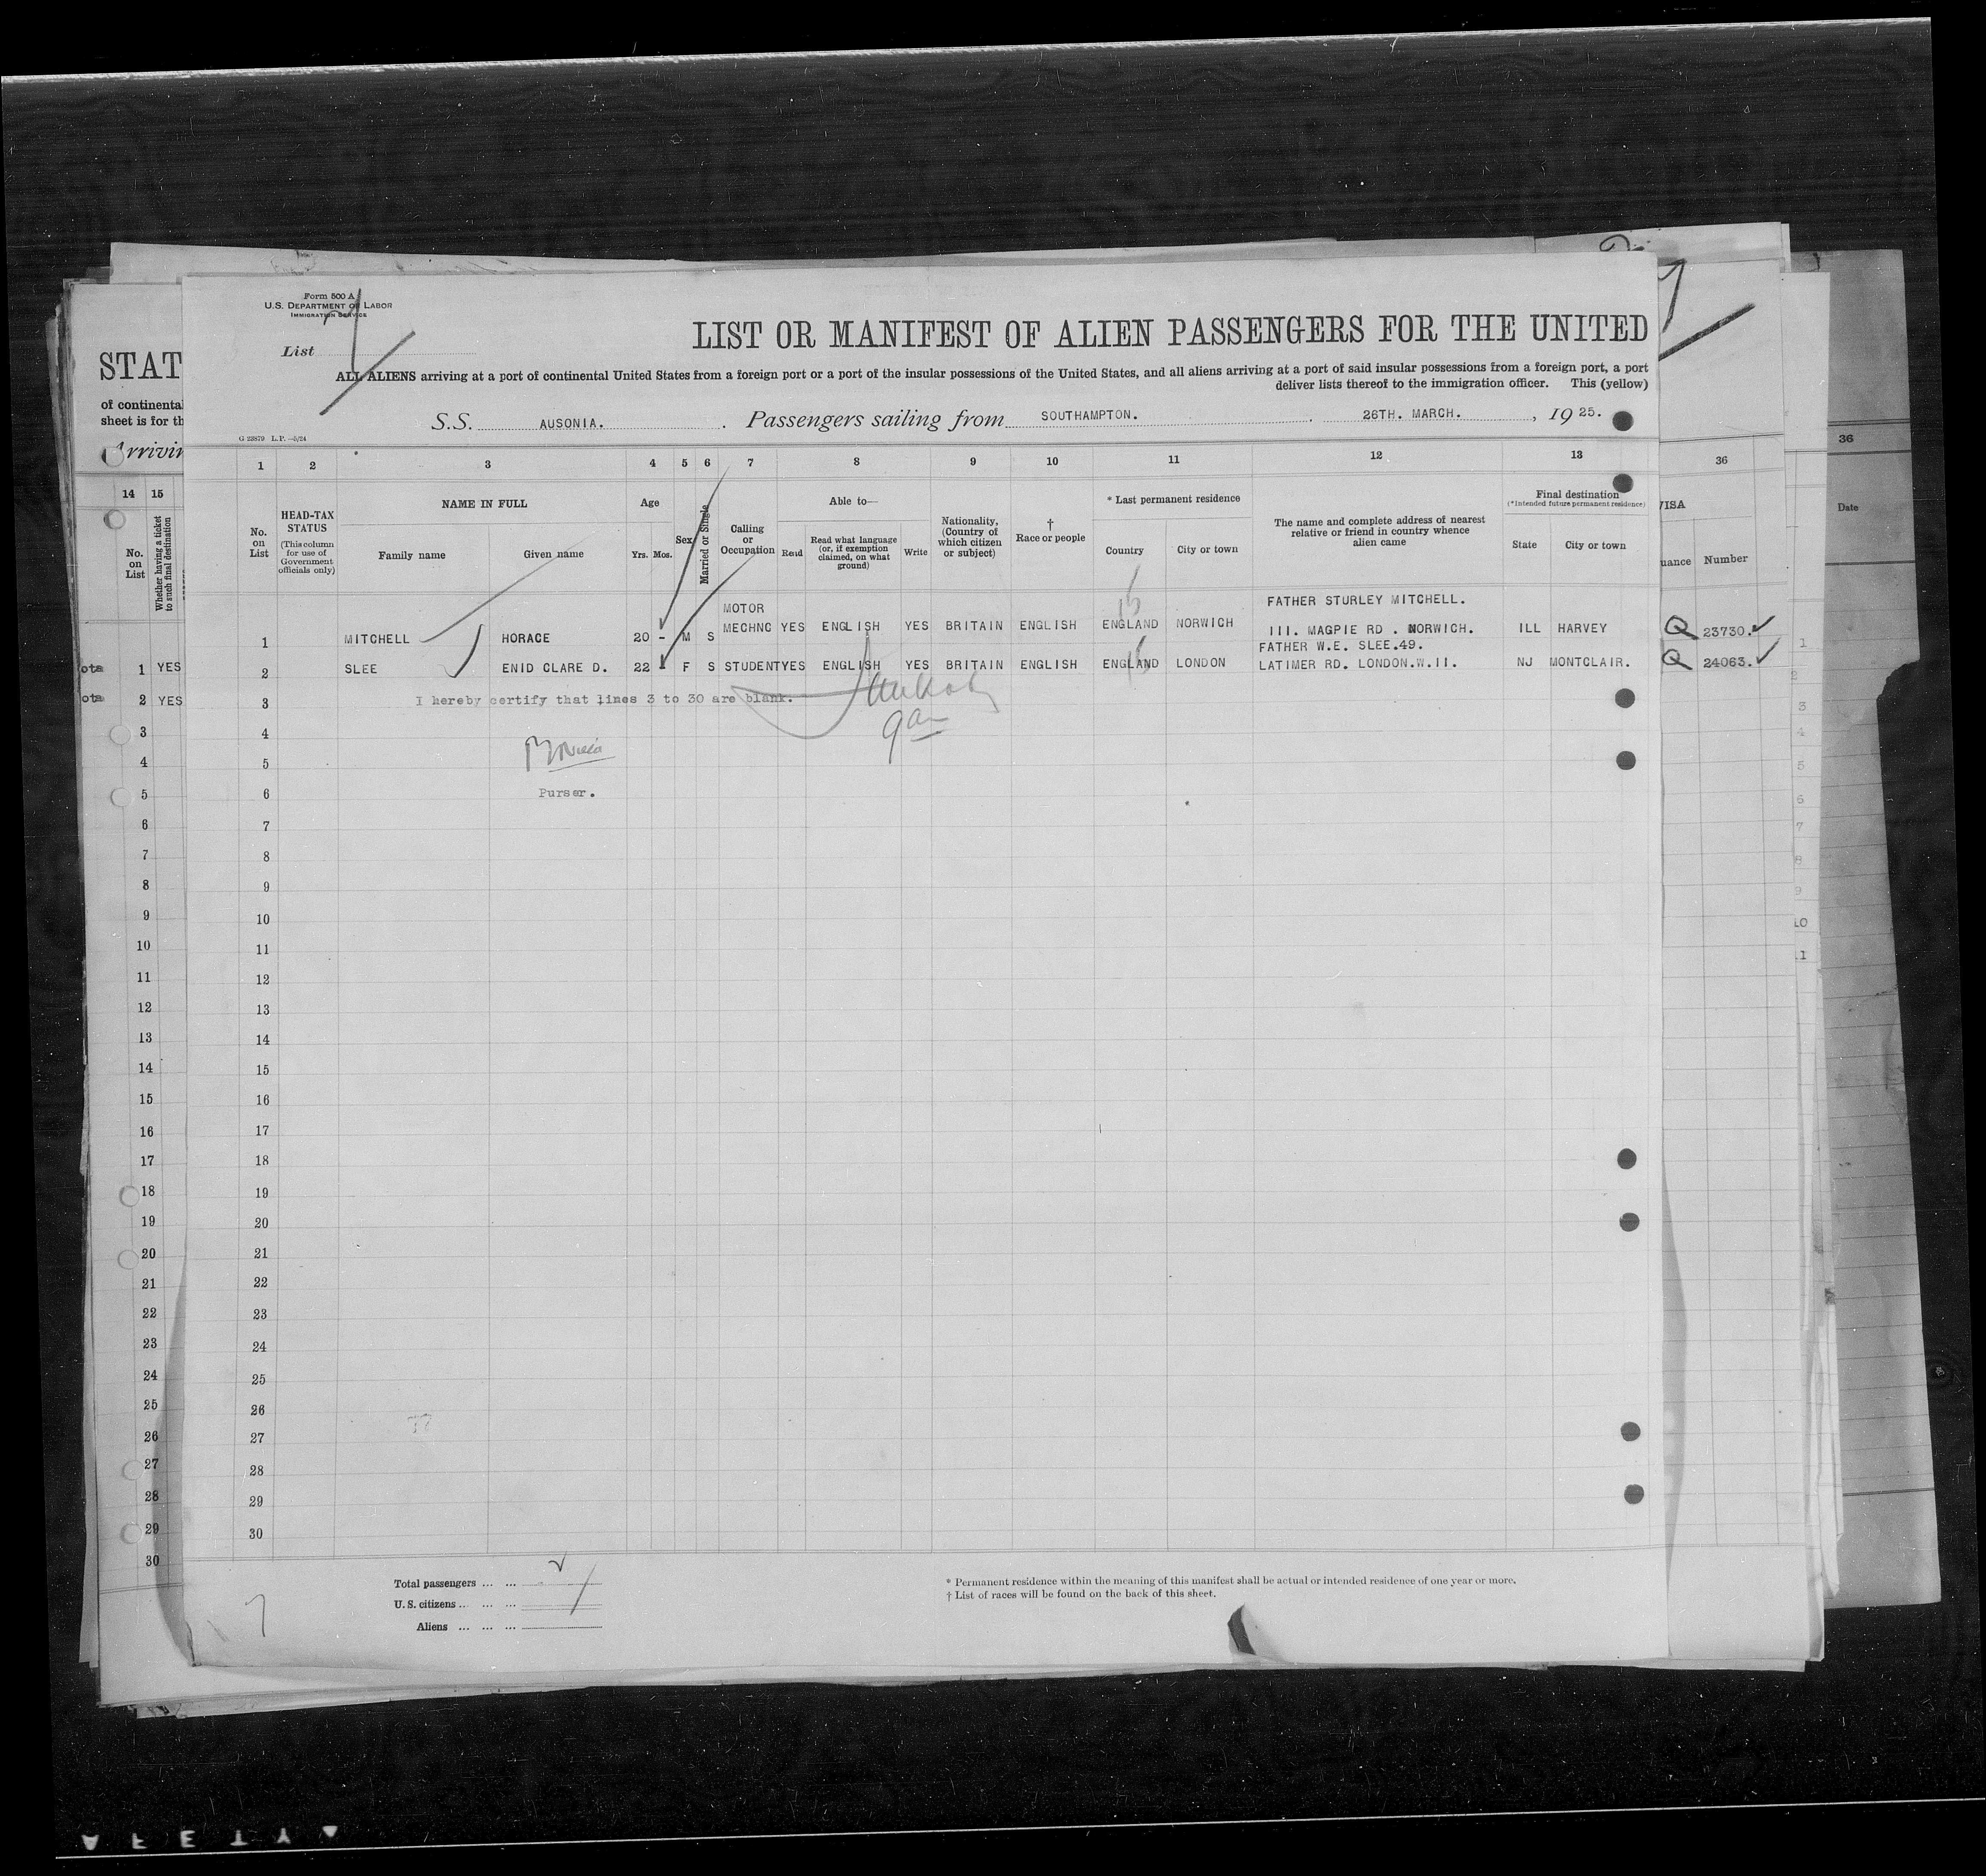 Form 500 A
U.S. DEPARTMENT OF LABOR
IMMIGRATION SERVICE
List
LIST OR MANIFEST OF ALIEN PASSENGERS FOR THE UNITED
ALL ALIENS arriving at a port of continental United States from a foreign port or a port of the insular possessions of the United States, and all aliens arriving at a port of said insular possessions from a foreign port, a port
deliver lists thereof to the immigration officer. This (yellow)
S.S. AUSONIA. Passengers sailing from SOUTHAMPTON. 26TH. MARCH. , 19 25.
G 23879 L.P.—5/24
STAT
of continental
sheet is for th
Arrivin
14 15
No. on List
Whether having a ticket to such final destination
1 2 3 4 5 6 7 8 9 10 11 12 13
No. on List
HEAD-TAX STATUS
(This column for use of Government officials only)
NAME IN FULL
Family name
Given name
Age
Yrs. Mos.
Sex
Married or Single
Calling or Occupation
Able to—
Read
Read what language (or, if exemption claimed, on what ground)
Write
Nationality, (Country of which citizen or subject)
† Race or people
* Last permanent residence
Country
City or town
The name and complete address of nearest relative or friend in country whence alien came
Final destination
(*Intended future permanent residence)
State
City or town
36
VISA
uance Number
36
Date
FATHER STURLEY MITCHELL.
MOTOR
1 MITCHELL HORACE 20 - M S MECHNC YES ENGLISH YES BRITAIN ENGLISH ENGLAND NORWICH III. MAGPIE RD . NORWICH. ILL HARVEY Q 23730.
FATHER W.E. SLEE.49.
2 SLEE ENID CLARE D. 22 - F S STUDENT YES ENGLISH YES BRITAIN ENGLISH ENGLAND LONDON LATIMER RD. LONDON.W.II. NJ MONTCLAIR. Q 24063.
3 I hereby certify that lines 3 to 30 are blank.
4
5
6 Purser.
7
8
9
10
11
12
13
14
15
16
17
18
19
20
21
22
23
24
25
26
27
28
29
30
ota 1 YES
ota 2 YES
3
4
5
6
7
8
9
10
11
12
13
14
15
16
17
18
19
20
21
22
23
24
25
26
27
28
29
30
Total passengers ... ...
U.S. citizens ... ... ...
Aliens ... ... ...
* Permanent residence within the meaning of this manifest shall be actual or intended residence of one year or more.
† List of races will be found on the back of this sheet.
7